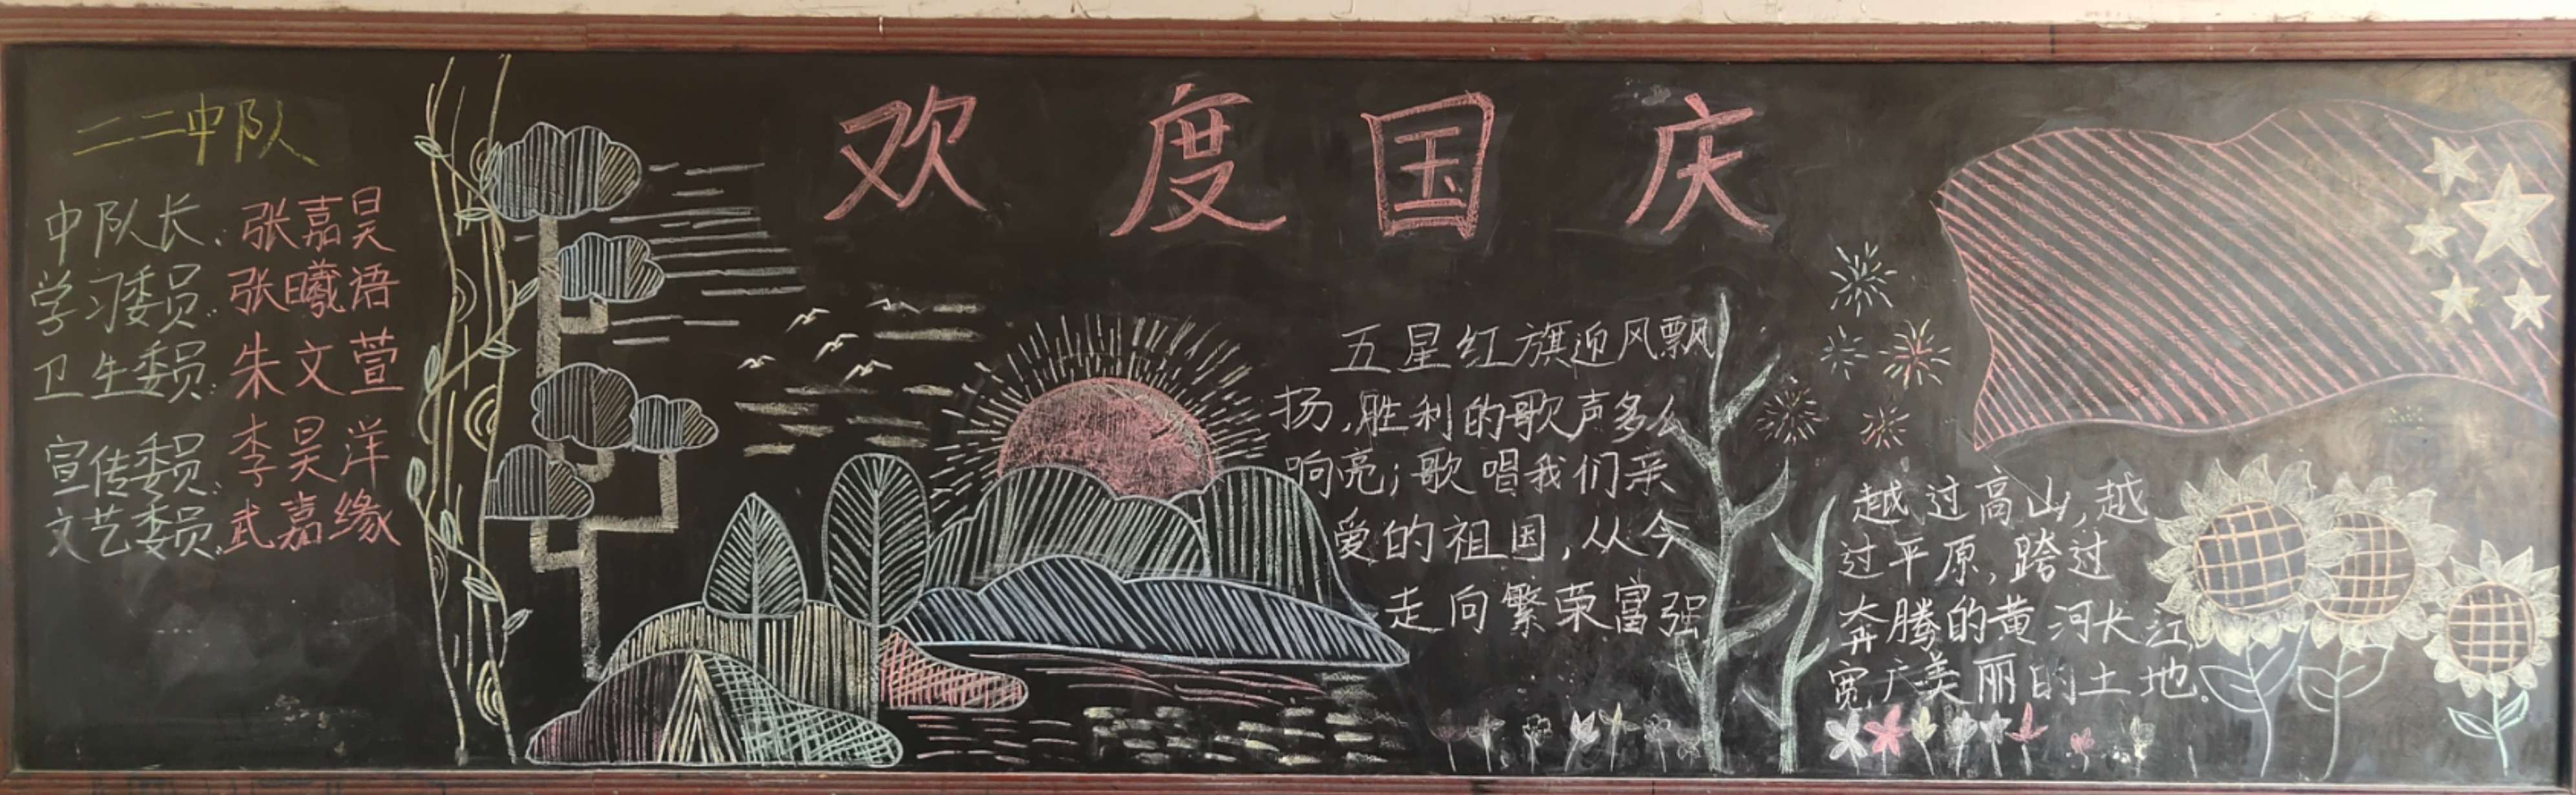 二二中队
中队长:张嘉昊
学习委员:张曦语
卫生委员:朱文萱
宣传委员:李昊洋
文艺委员:武嘉缘
欢度国庆
五星红旗迎风飘
扬,胜利的歌声多么
响亮;歌唱我们亲
爱的祖国,从今
走向繁荣富强
越过高山,越
过平原,跨过
奔腾的黄河长江
宽广美丽的土地.